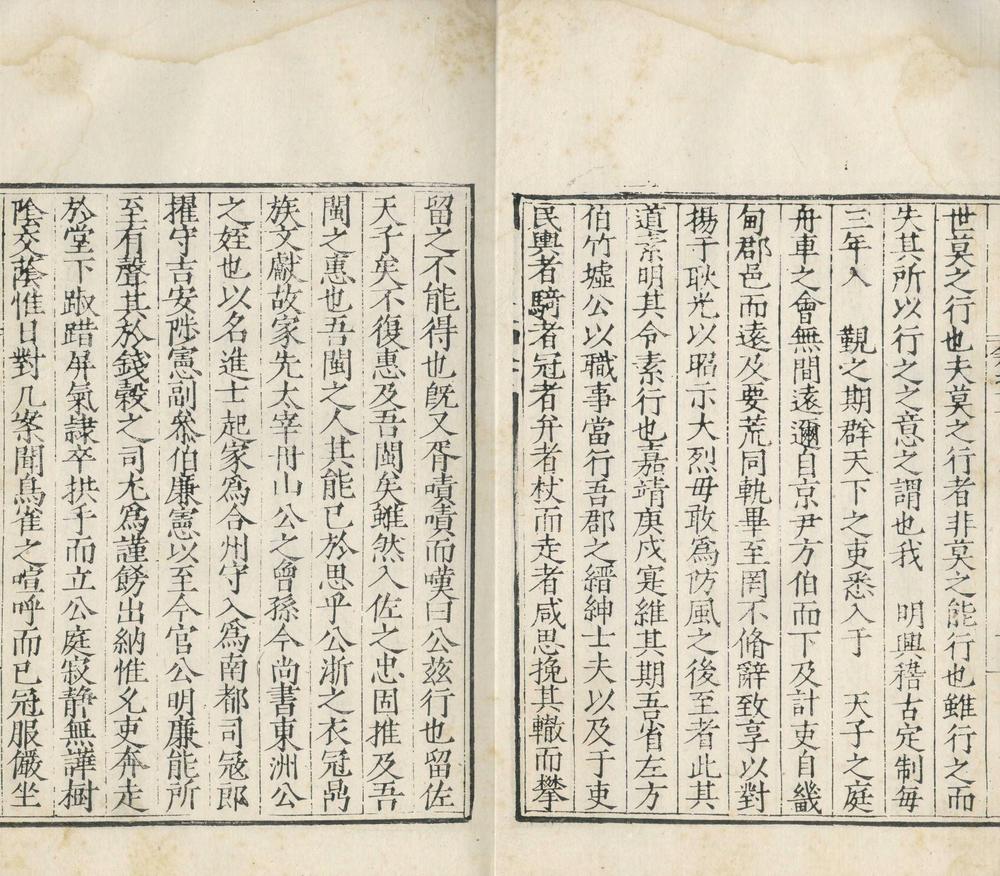 世莫之行也夫莫之行者非莫之能行也雖行之而
失其所以行之之意之謂也我　明興稽古定制每
三年入　覲之期群天下之吏悉入于　天子之庭
舟車之會無間遠邇自京尹方伯而下及計吏自畿
甸郡邑而遠及要荒同軌畢至罔不脩辭致享以對
揚于耿光以昭示大烈毋敢爲防風之後至者此其
道素明其令素行也嘉靖庚戌寔維其期吾省左方
伯竹墟公以職事當行吾郡之縉紳士夫以及于吏
民輿者騎者冠者弁者杖而走者咸思挽其轍而攀
留之不能得也旣又胥嘖嘖而嘆曰公兹行也留佐
天子矣不復惠及吾閩矣雖然入佐之忠固推及吾
閩之惠也吾閩之人其能已於思乎公浙之衣冠鼎
族文獻故家先太宰冊山公之曾孫今尚書東洲公
之姪也以名進士起家爲合州守入爲南都司寇郎
擢守吉安陟憲副叅伯廉憲以至今官公明廉能所
至有聲其於錢穀之司尤爲謹飭出納惟允吏奔走
於堂下踧踖屏氣隷卒拱手而立公庭寂静無譁樹
陰交蔭惟日對几案聞鳥雀之喧呼而已冠服儼坐